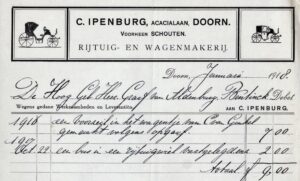 C. IPENBURG, ACACIALAAN, DOORN.
VOORHEEN SCHOUTEN.
RIJTUIG- EN WAGENMAKERIJ.
Doorn, Januari 1918.
De Hoog Geb. Heer Graaf van Aldenburg Bentinck Debet
Wegens gedane Werkzaamheden en Leverantiën, AAN C. IPENBURG.
1916 een voorzet in het wagentje van
gemaakt volgens opgaaf 7,00
190
Oct. 22 en bus in een vastgelegd 2,00
Totaal f 9.00